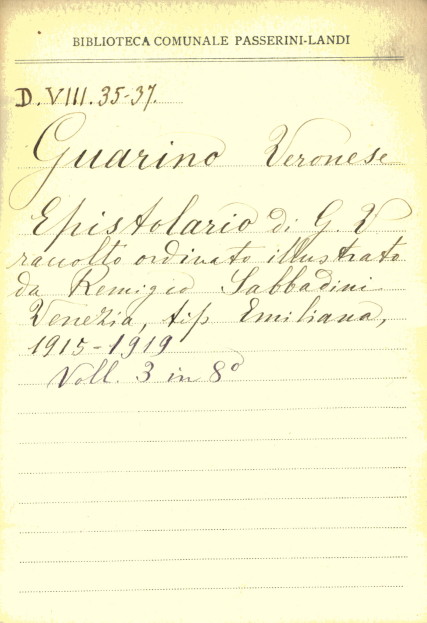 BIBLIOTECA COMUNALE PASSERINI-LANDI
D. VIII. 35-37.
Guarino Veronese
Epistolario di G. V
raccolto ordinato illustrato
da Remigio Sabbadini
Venezia, tip Emiliana,
1915-1919
Voll. 3 in 8º